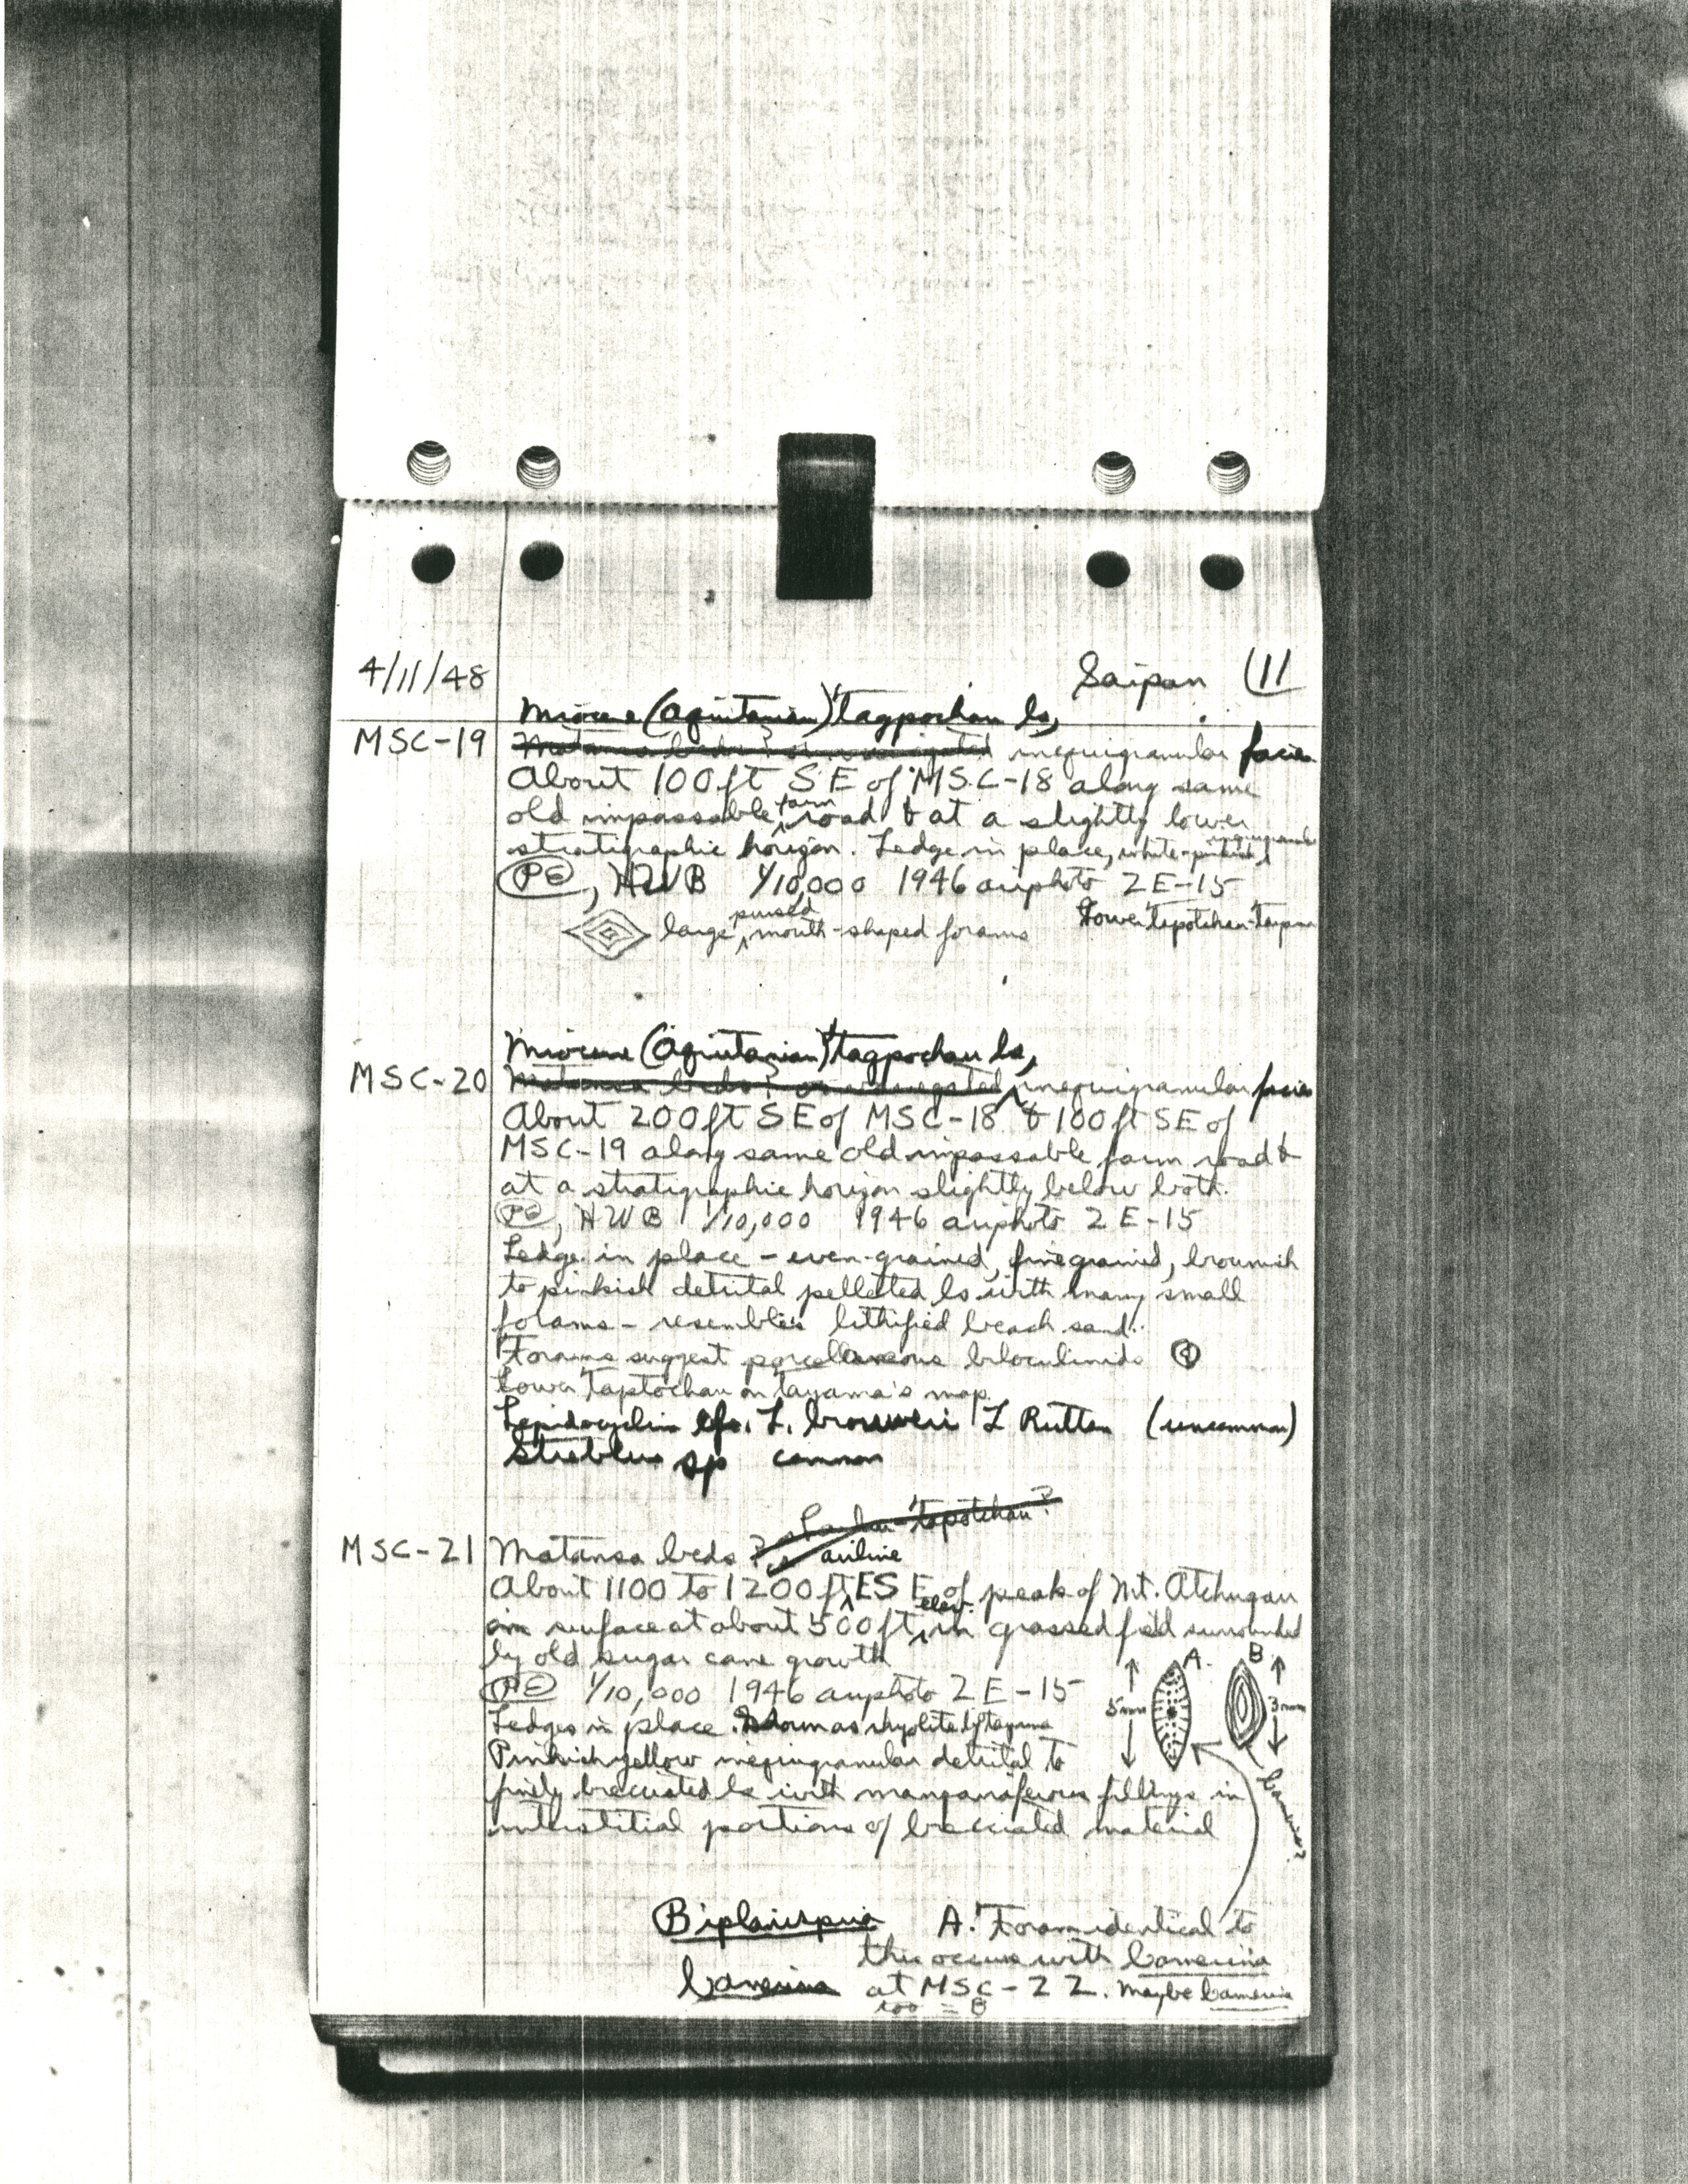 4/11/48 Saipan (11
Miocene (Aquitanian) tagpochau ls,
MSC-19 Matansa beds? or variegated inequigranular facies
About 100 ft SE of MSC-18 along same
old impassable farm road & at a slightly lower
stratigraphic horizon. Ledge in place, white-pinkish inequigranular
PE, HWB 1/10,000 1946 airphoto 2E-15
large pursed mouth-shaped forams Lower tapotchau-Tayama
Miocene (Aquitanian) tagpochau ls,
MSC-20 Matansa beds? or variegated inequigranular facies
About 200 ft SE of MSC-18 & 100 ft SE of
MSC-19 along same old impassable farm road &
at a stratigraphic horizon slightly below both.
PE, HWB 1/10,000 1946 airphoto 2E-15
Ledge in place - even-grained, fine grained, brownish
to pinkish detrital pelleted ls with many small
forams - resembles lithified beach sand.
Forams suggest porcellaneous biloculinids
Lower Taptochau on Tayama's map
Lepidocyclin L. brouweri L Rutten (uncommon)
Streblus sp common
tapotchau?
MSC-21 Matansa beds? airline
About 1100 to 1200 ft ESE of peak of Mt. Atchugau
on surface at about 500 ft elev. in grassed field surrounded
by old sugar cane growth
PE 1/10,000 1946 airphoto 2E-15
A. B
5mm 3mm
Ledges in place. Shown as rhyolite by tayama
Pinkish yellow inequigranular detrital to
finely brecciated ls with manganiferous fillings in
interstitial portions of brecciated material
Camerina?
Biplanispira A. Foram identical to
this occurs with Camerina
Camerina at MSC-22. Maybe Camerina
too = B